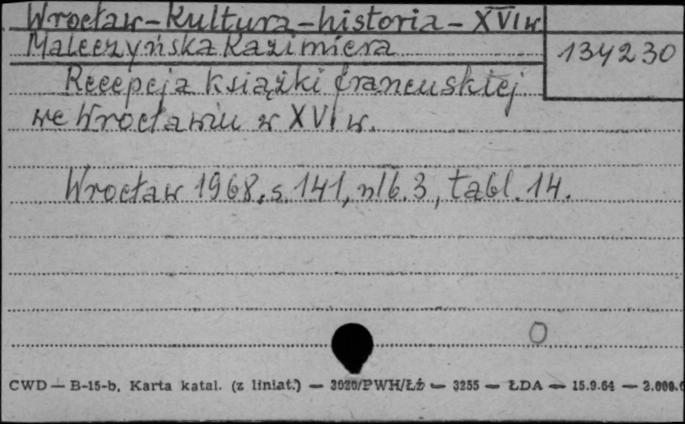 Wrocław - Kultura - historia - XVI w
Maleczyńska Kazimiera
134230
Recepcja książki francuskiej
we Wrocławiu w XVI w.
Wrocław 1968, s. 141, nlb. 3, tabl. 14.
CWD — B-15-b, Karta katal. (z liniat.) — 3020/PWH/Łż — 3255 — ŁDA — 15.9.64 —